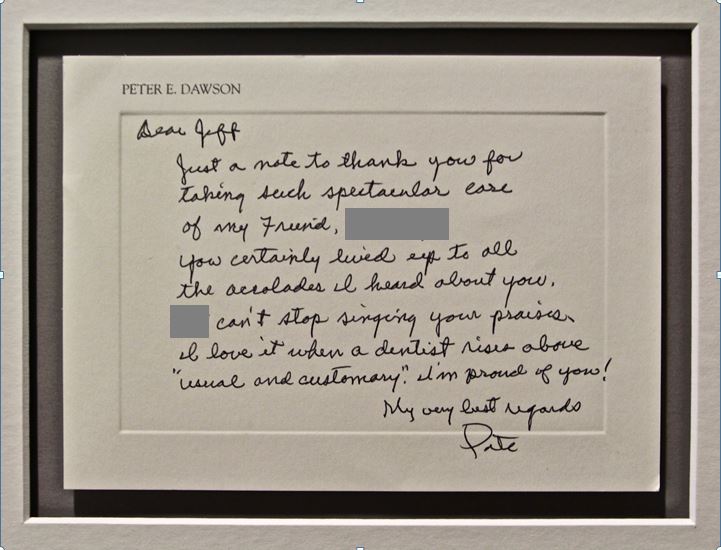 PETER E. DAWSON
Dear Jeff
Just a note to thank you for
taking such spectacular care
of my Friend,
you certainly lived up to all
the accolades I heard about you.
can't stop singing your praises.
I love it when a dentist rises above
"usual and customary". I'm proud of you!
My very best regards
Pete